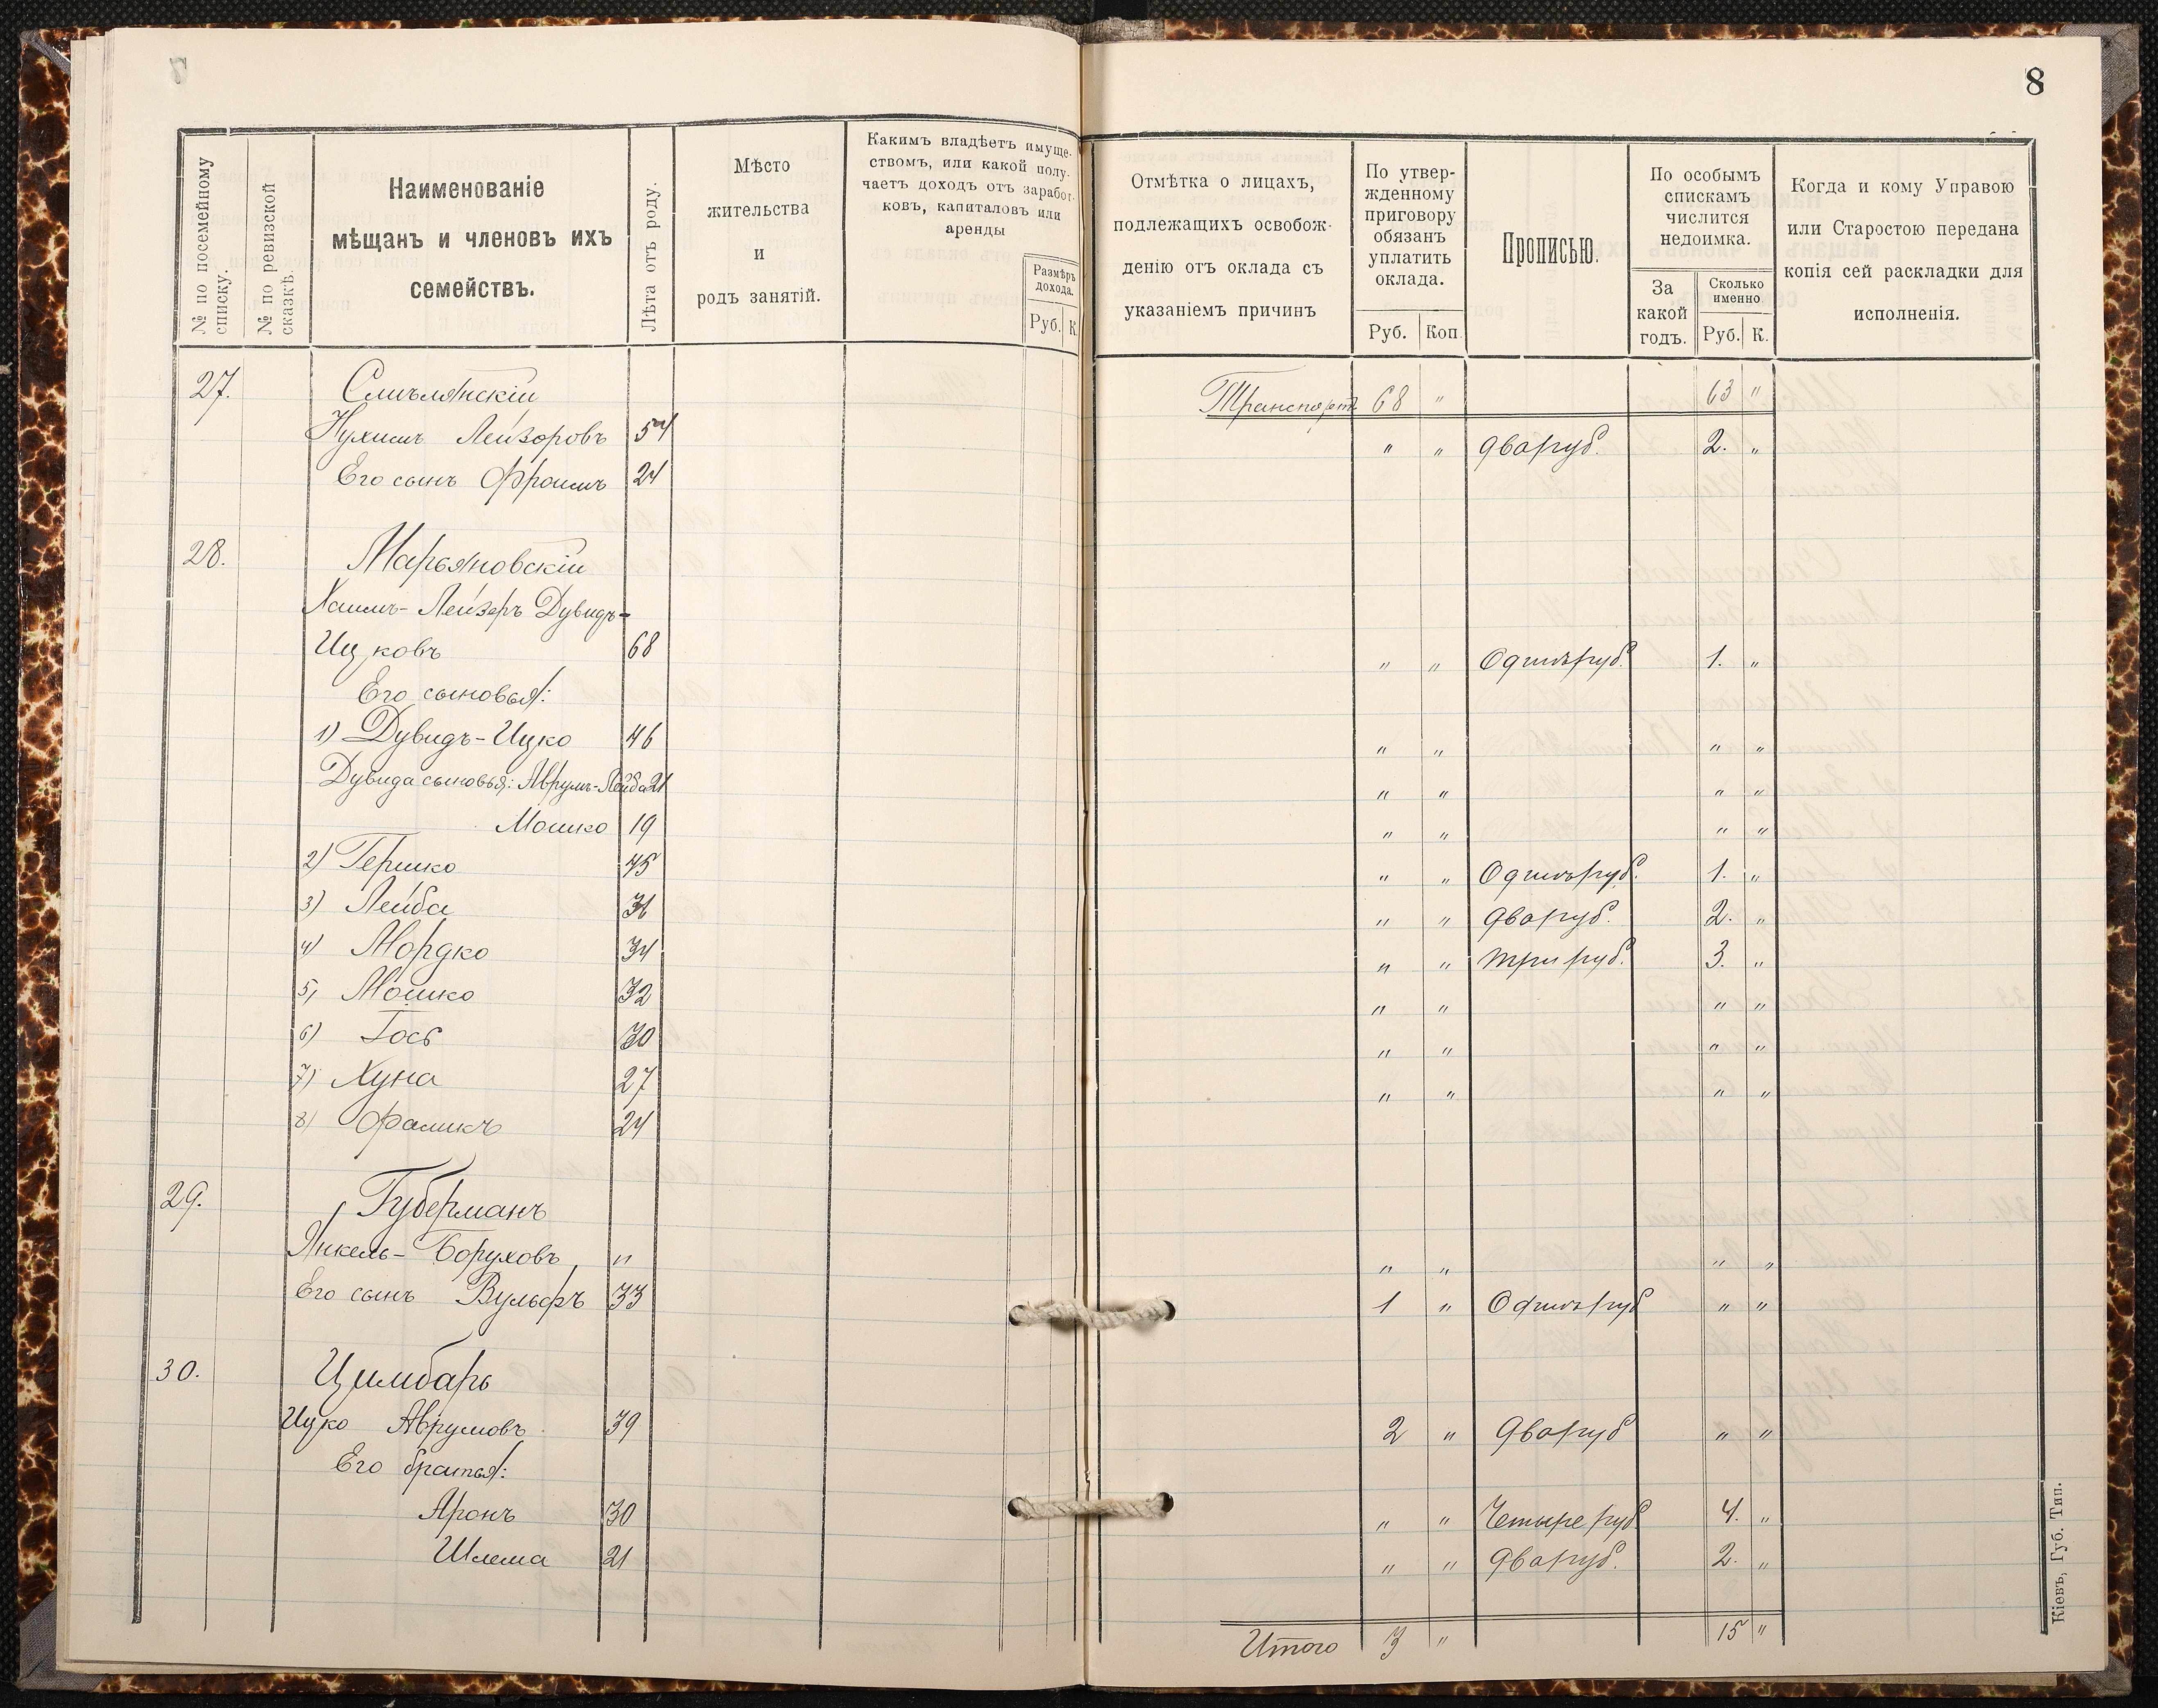 8
№ по посемейному списку.
№ по ревизской сказкѣ.
Наименованіе
мѣщанъ и членовъ ихъ
семействъ.
Лѣта отъ роду.
Мѣсто
жительства
и
родъ занятій.
Какимъ владѣетъ имуще-
ствомъ, или какой полу-
чаетъ доходъ отъ заработ-
ковъ, капиталовъ или
аренды
Размѣръ
дохода.
Руб. К
Отмѣтка о лицахъ,
подлежащихъ освобож-
денію отъ оклада съ
указаніемъ причинъ
По утвер-
жденному
приговору
обязанъ
уплатить
оклада.
Руб. Коп.
Прописью.
По особымъ
спискамъ
числится
недоимка.
За
какой
годъ.
Сколько
именно
Руб. К.
Когда и кому Управою
или Старостою передана
копія сей раскладки для
исполненія.
27. Смѣлянскій
Транспортъ 68 " 63 "
Нухимъ Лейзоровъ 54 " " два руб. 2. "
Его сынъ Фроимъ 24
28. Марьяновскій
Хаимъ-Лейзеръ Дувидъ-
Ицковъ 68 " " Одинъ руб. 1. "
Его сыновья:
1) Дувидъ-Ицко 46 " " " "
Дувида сыновья: Аврумъ-Лейба 21 " " " "
Мошко 19 " " " "
2) Гершко 45 " " Одинъ руб. 1. "
3) Лейба " " два руб. 2. "
4) Мордко 34 " " три руб. 3. "
5) Мошко 32 " " " "
6) Іось 30 " " " "
7) Хуна 27 " " " "
8) Фаликъ 24
29. Губерманъ
Янкель-Боруховъ " " " " "
Его сынъ Вульфъ 33 1 " Одинъ руб " "
30. Цимбаръ
Ицко Аврумовъ 39 2 " два руб " "
Его братья:
Аронъ 30 " " Четыре руб 4. "
Шлема 21 " " два руб. 2. "
Итого 3 " 15 "
Кіевъ, Губ. Тип.